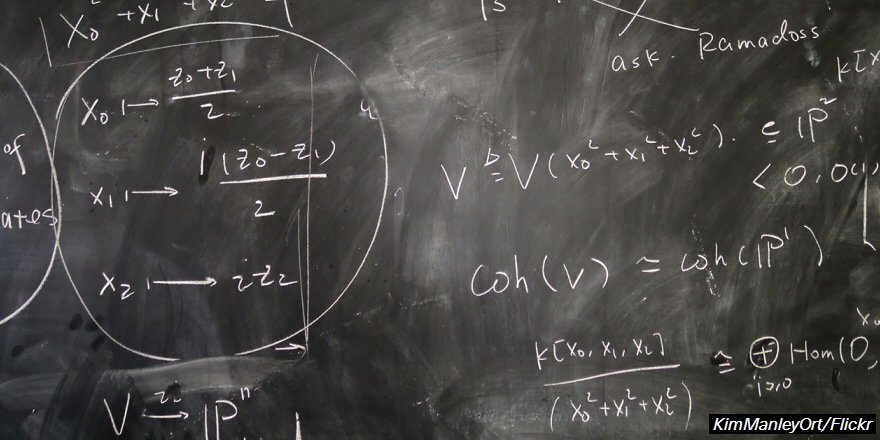 x₀² + x₁² + x₂²
ask Ramadoss
k[x
of
ates
x₀ ↦ (z₀+z₁)/2
x₁ ↦ i(z₀−z₁)/2
x₂ ↦ iz₂
V ≅ V(x₀²+x₁²+x₂²) ⊆ ℙ²
< O, O(1)
Coh(V) ≃ Coh(ℙ¹)
k[x₀, x₁, x₂]/(x₀²+x₁²+x₂²) ≅ ⊕ Hom(O,
i≥0
V → ℙⁿ
KimManleyOrt/Flickr